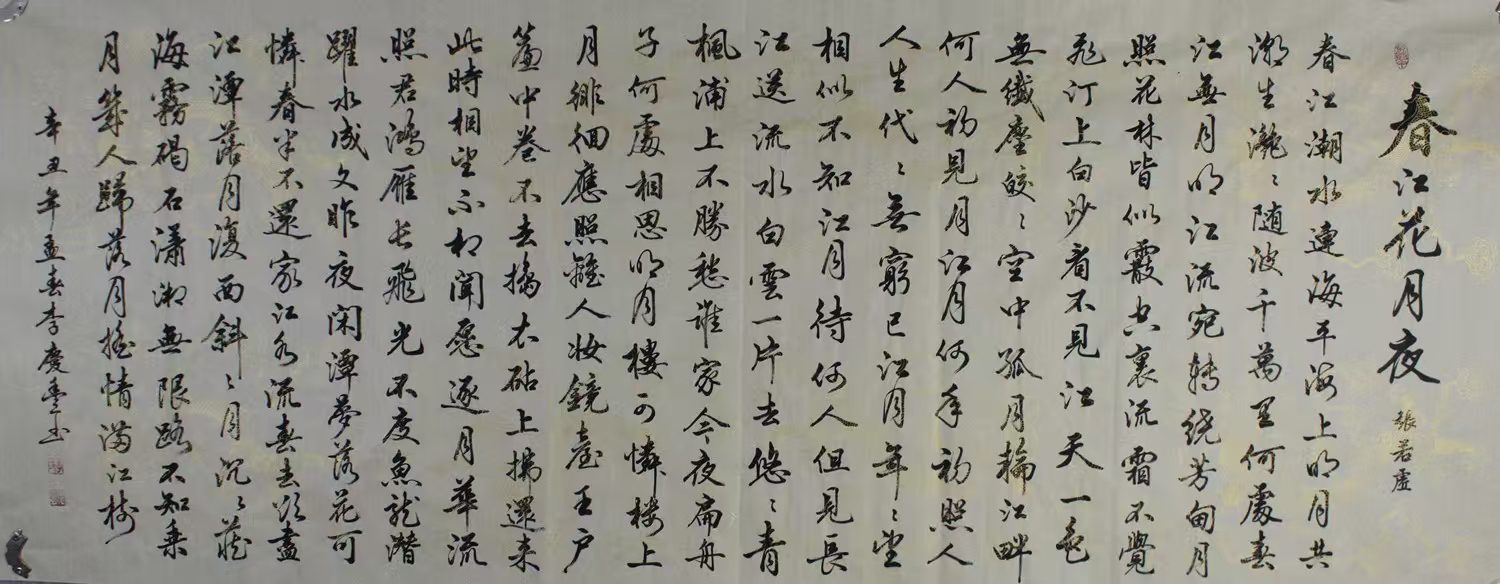 春江花月夜
張若虛
春江潮水連海平海上明月共
潮生灩〻随波千萬里何處春
江無月明江流宛转绕芳甸月
照花林皆似霰空裏流霜不覺
飛汀上白沙看不見江天一色
無纖塵皎〻空中孤月輪江畔
何人初見月江月何年初照人
人生代〻無窮已江月年〻望
相似不知江月待何人但見長
江送流水白雲一片去悠〻青
楓浦上不勝愁谁家今夜扁舟
子何處相思明月樓可憐楼上
月徘徊應照離人妝鏡臺玉户
簾中卷不去擣衣砧上拂還来
此時相望不相聞愿逐月華流
照君鴻雁長飛光不度魚龍潜
躍水成文昨夜闲潭夢落花可
憐春半不還家江水流春去欲盡
江潭落月復西斜〻月沉〻藏
海霧碣石瀟湘無限路不知乘
月幾人歸落月摇情满江树
辛丑年孟春李慶豐书